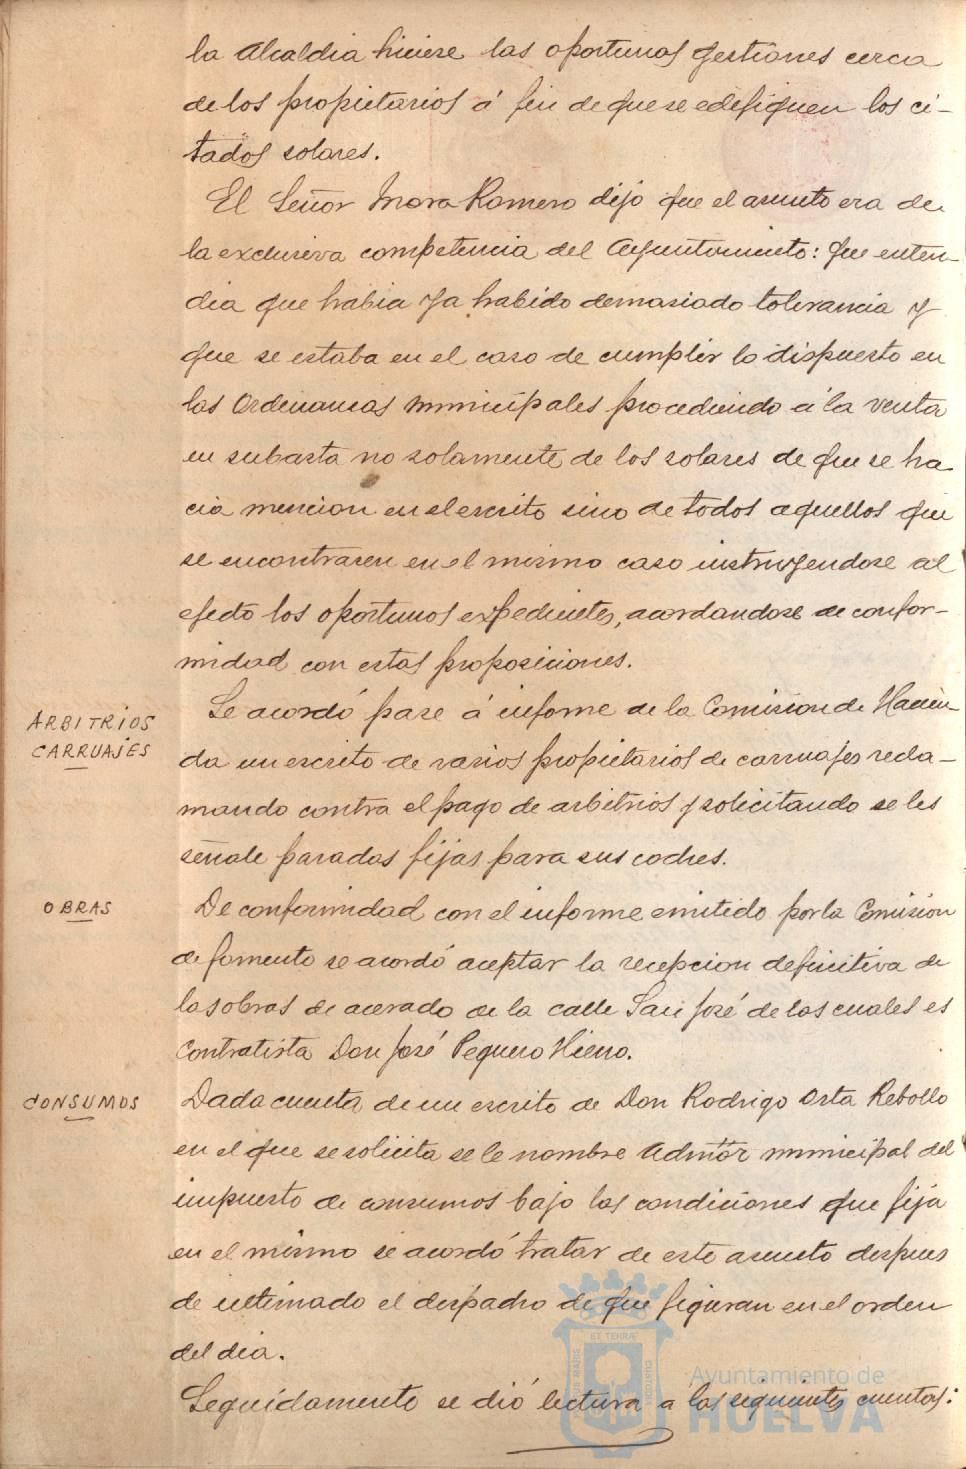 la Alcaldia hiciese las oportunas gestiones cerca
de los propietarios á fin de que se edifiquen los ci-
tados solares.
El Señor Mora Romero dijo que el asunto era de
la exclusiva competencia del Ayuntamiento: que enten-
dia que habia ya habido demasiado tolerancia y
que se estaba en el caso de cumplir lo dispuesto en
las Ordenanzas municipales procediendo á la venta
en subasta no solamente de los solares de que se ha
cia mencion en el escrito sino de todos aquellos que
se encontrasen en el mismo caso instruyendose al
efecto los oportunos expedientes, acordandose de confor-
midad con estas proposiciones.
ARBITRIOS
CARRUAJES
Se acordó pase á informe de la Comision de Hacien-
da un escrito de varios propietarios de carruajes recla-
mando contra el pago de arbitrios y solicitando se les
señale paradas fijas para sus coches.
OBRAS
De conformidad con el informe emitido por la Comision
de fomento se acordó aceptar la recepcion definitiva de
las obras de acerado de la calle San José de las cuales es
Contratista Don José Peguero Hierro.
CONSUMOS
Dada cuenta de un escrito de Don Rodrigo Orta Rebollo
en el que se solicita se le nombre Admtor municipal del
impuesto de consumos bajo las condiciones que fija
en el mismo se acordó tratar de este asunto despues
de ultimado el despacho de que figuran en el orden
del dia.
Seguidamente se dió lectura a las siguientes cuentas:
Ayuntamiento de
HUELVA